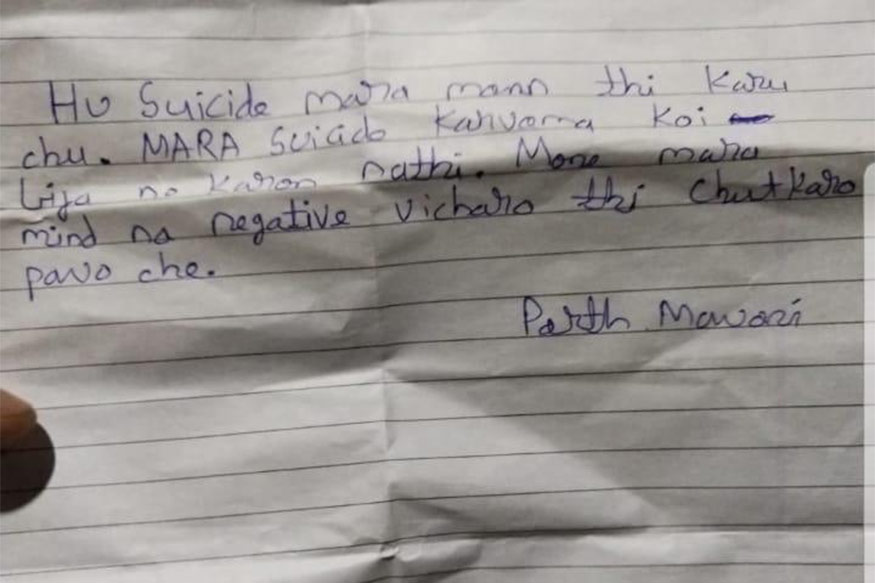 Hu Suicide mara mann thi Karu
chu. MARA Suicide Karvama Koi
bija no Karon nathi. Mone mara
mind na negative vicharo thi Chutkaro
pavo che.
Parth Mavani